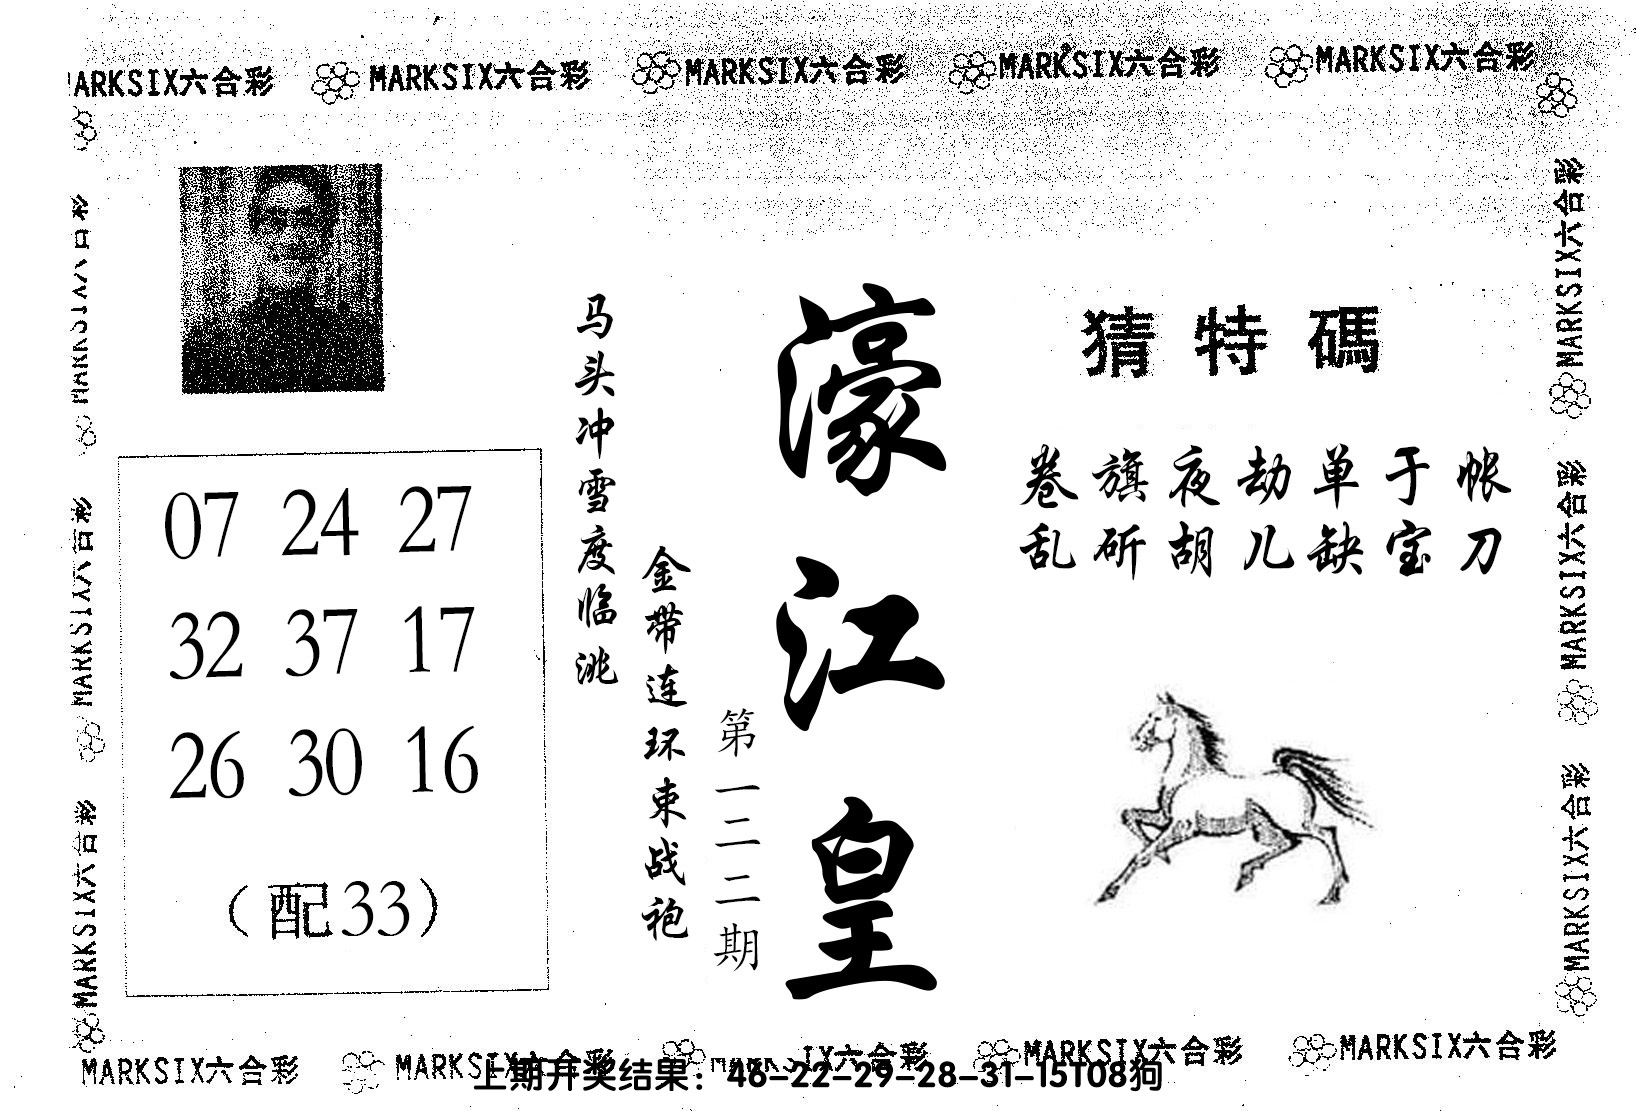 MARKSIX六合彩 MARKSIX六合彩 MARKSIX六合彩 MARKSIX六合彩 MARKSIX六合彩
猜特碼
卷旗夜劫单于帐
乱斫胡儿缺宝刀
濠江皇
第一二二期
马头冲雪度临洮
金带连环束战袍
07 24 27
32 37 17
26 30 16
（配33）
MARKSIX六合彩
MARKSIX六合彩
MARKSIX六合彩
MARKSIX六合彩
MARKSIX六合彩
MARKSIX六合彩
MARKSIX六合彩 MARKSIX六合彩 MARKSIX六合彩 MARKSIX六合彩 MARKSIX六合彩
上期开奖结果：46-22-29-28-31-15T08狗